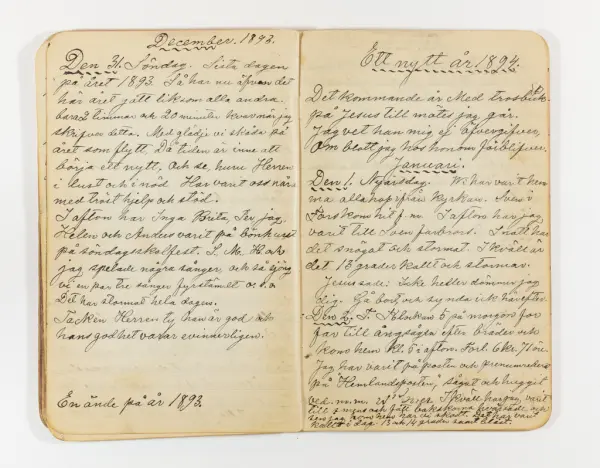 December. 1893.
Den 31. Söndag. Sista dagen
på året 1893. Så har nu äfven det
här året gått liksom alla andra.
bara 3 timmar och 20 minuter kvar när jag
skrifver detta. Med glädje vi skåda på
året som flytt. Då tiden är inne att
börja ett nytt. Och se, huru Herren
i lust och i nöd. Har varit oss nära
med tröst hjelp och stöd.
I afton har Inga Brita, Per jag
Helen och Anders varit på bönhuset
på söndagsskolfest. S. M. H. och
jag spelade några sånger, och så sjöng
vi en par tre sånger fyrstämt o.s.v.
Det har stormat hela dagen.
Tacken Herren: ty han är god och
hans godhet varar evinnerligen.
En ände på år 1893.
Ett nytt år 1894.
Det kommande år Med trosblick
på Jesus till mötes jag går.
Jag vet han mig ej öfvergifver,
Om blott jag hos honom förblifver.
Januari.
Den 1. Nyårsdag. Vi har varit
allihop ifrån kyrkan. Även i
kom hit f.m. I afton har jag
varit till farbrors. I natt har
det snögat och stormat. I kväll är
det 13 grader kallt och stormar.
Jesus sade: Icke heller dömer jag
dig. Gå bort och synda ick härefter.
Den 2. T. Klockan 5 på morgon for
far till Långsågen efter bräder och
kom hem kl. 5 i afton. Förl. 6 kr. 71 öre.
Jag har varit på posten och prenumrerat
på "Hemlandsposten", sågat och huggit
ved. m.m. I kväll har jag varit
till och
jag kom hem har det varit
kallt i dag. 13 och 14 grader samt blåst.